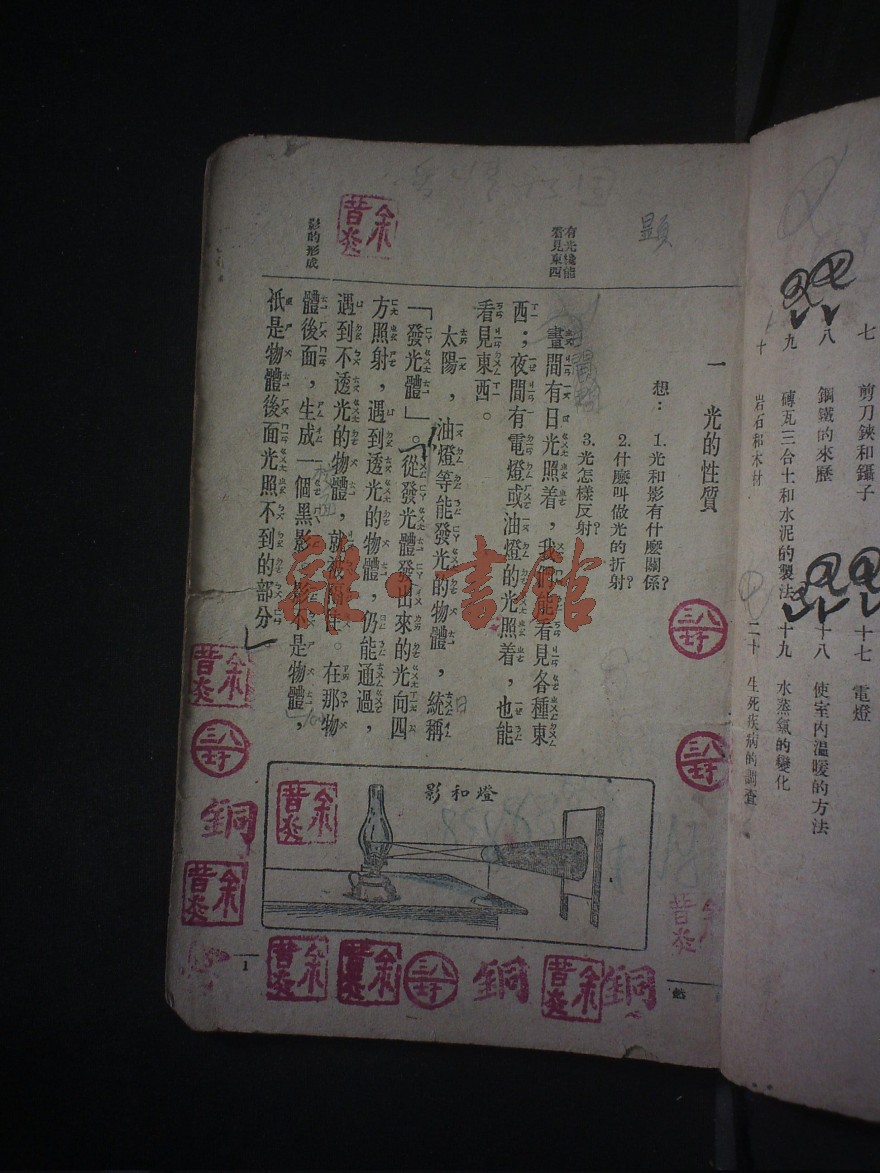 七　剪刀鋏和鑷子
八　鋼鐵的來歷
九　磚瓦三合土和水泥的製法
十　岩石和木材
十七　電燈
十八　使室內溫暖的方法
十九　水蒸氣的變化
二十　生死疾病的調查
一　光的性質
想：1.光和影有什麼關係?
2.什麼叫做光的折射?
3.光怎樣反射?
有光纔能
看見東西
晝間有日光照着，我們能看見各種東
西；夜間有電燈或油燈的光照着，也能
看見東西。
太陽，油燈等能發光的物體，統稱
「發光體」。從發光體發出來的光向四
方照射，遇到透光的物體，仍能通過，
遇到不透光的物體，就被
。在那物
影的形成
體後面，生成一個黑影。影不是物體，
祇是物體後面光照不到的部分。
燈和影
1
顯
余昔炎
余昔炎
余昔炎
余昔炎
余昔炎
余昔炎
余昔炎
銅
銅
銅
雜·書館